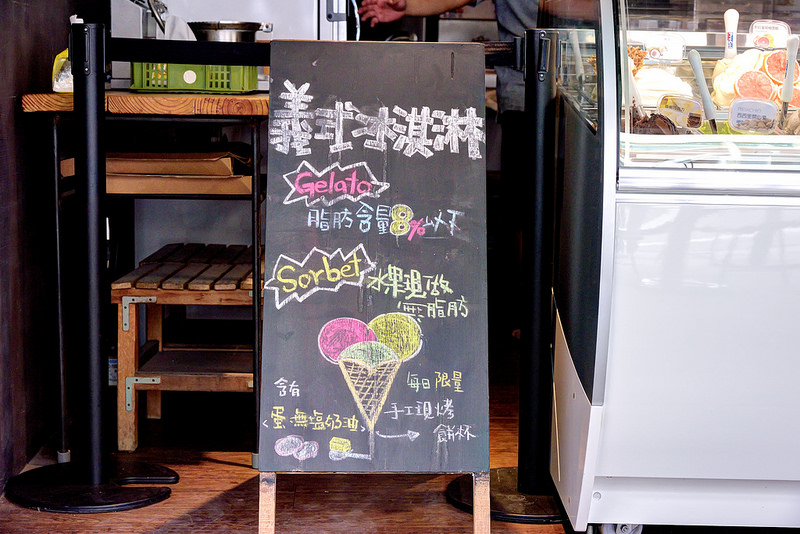 義式冰淇淋
Gelato
脂肪含量8%以下
Sorbet
水果現做
無脂肪
含有
<蛋.無塩奶油>
每日限量
手工現烤
餅杯